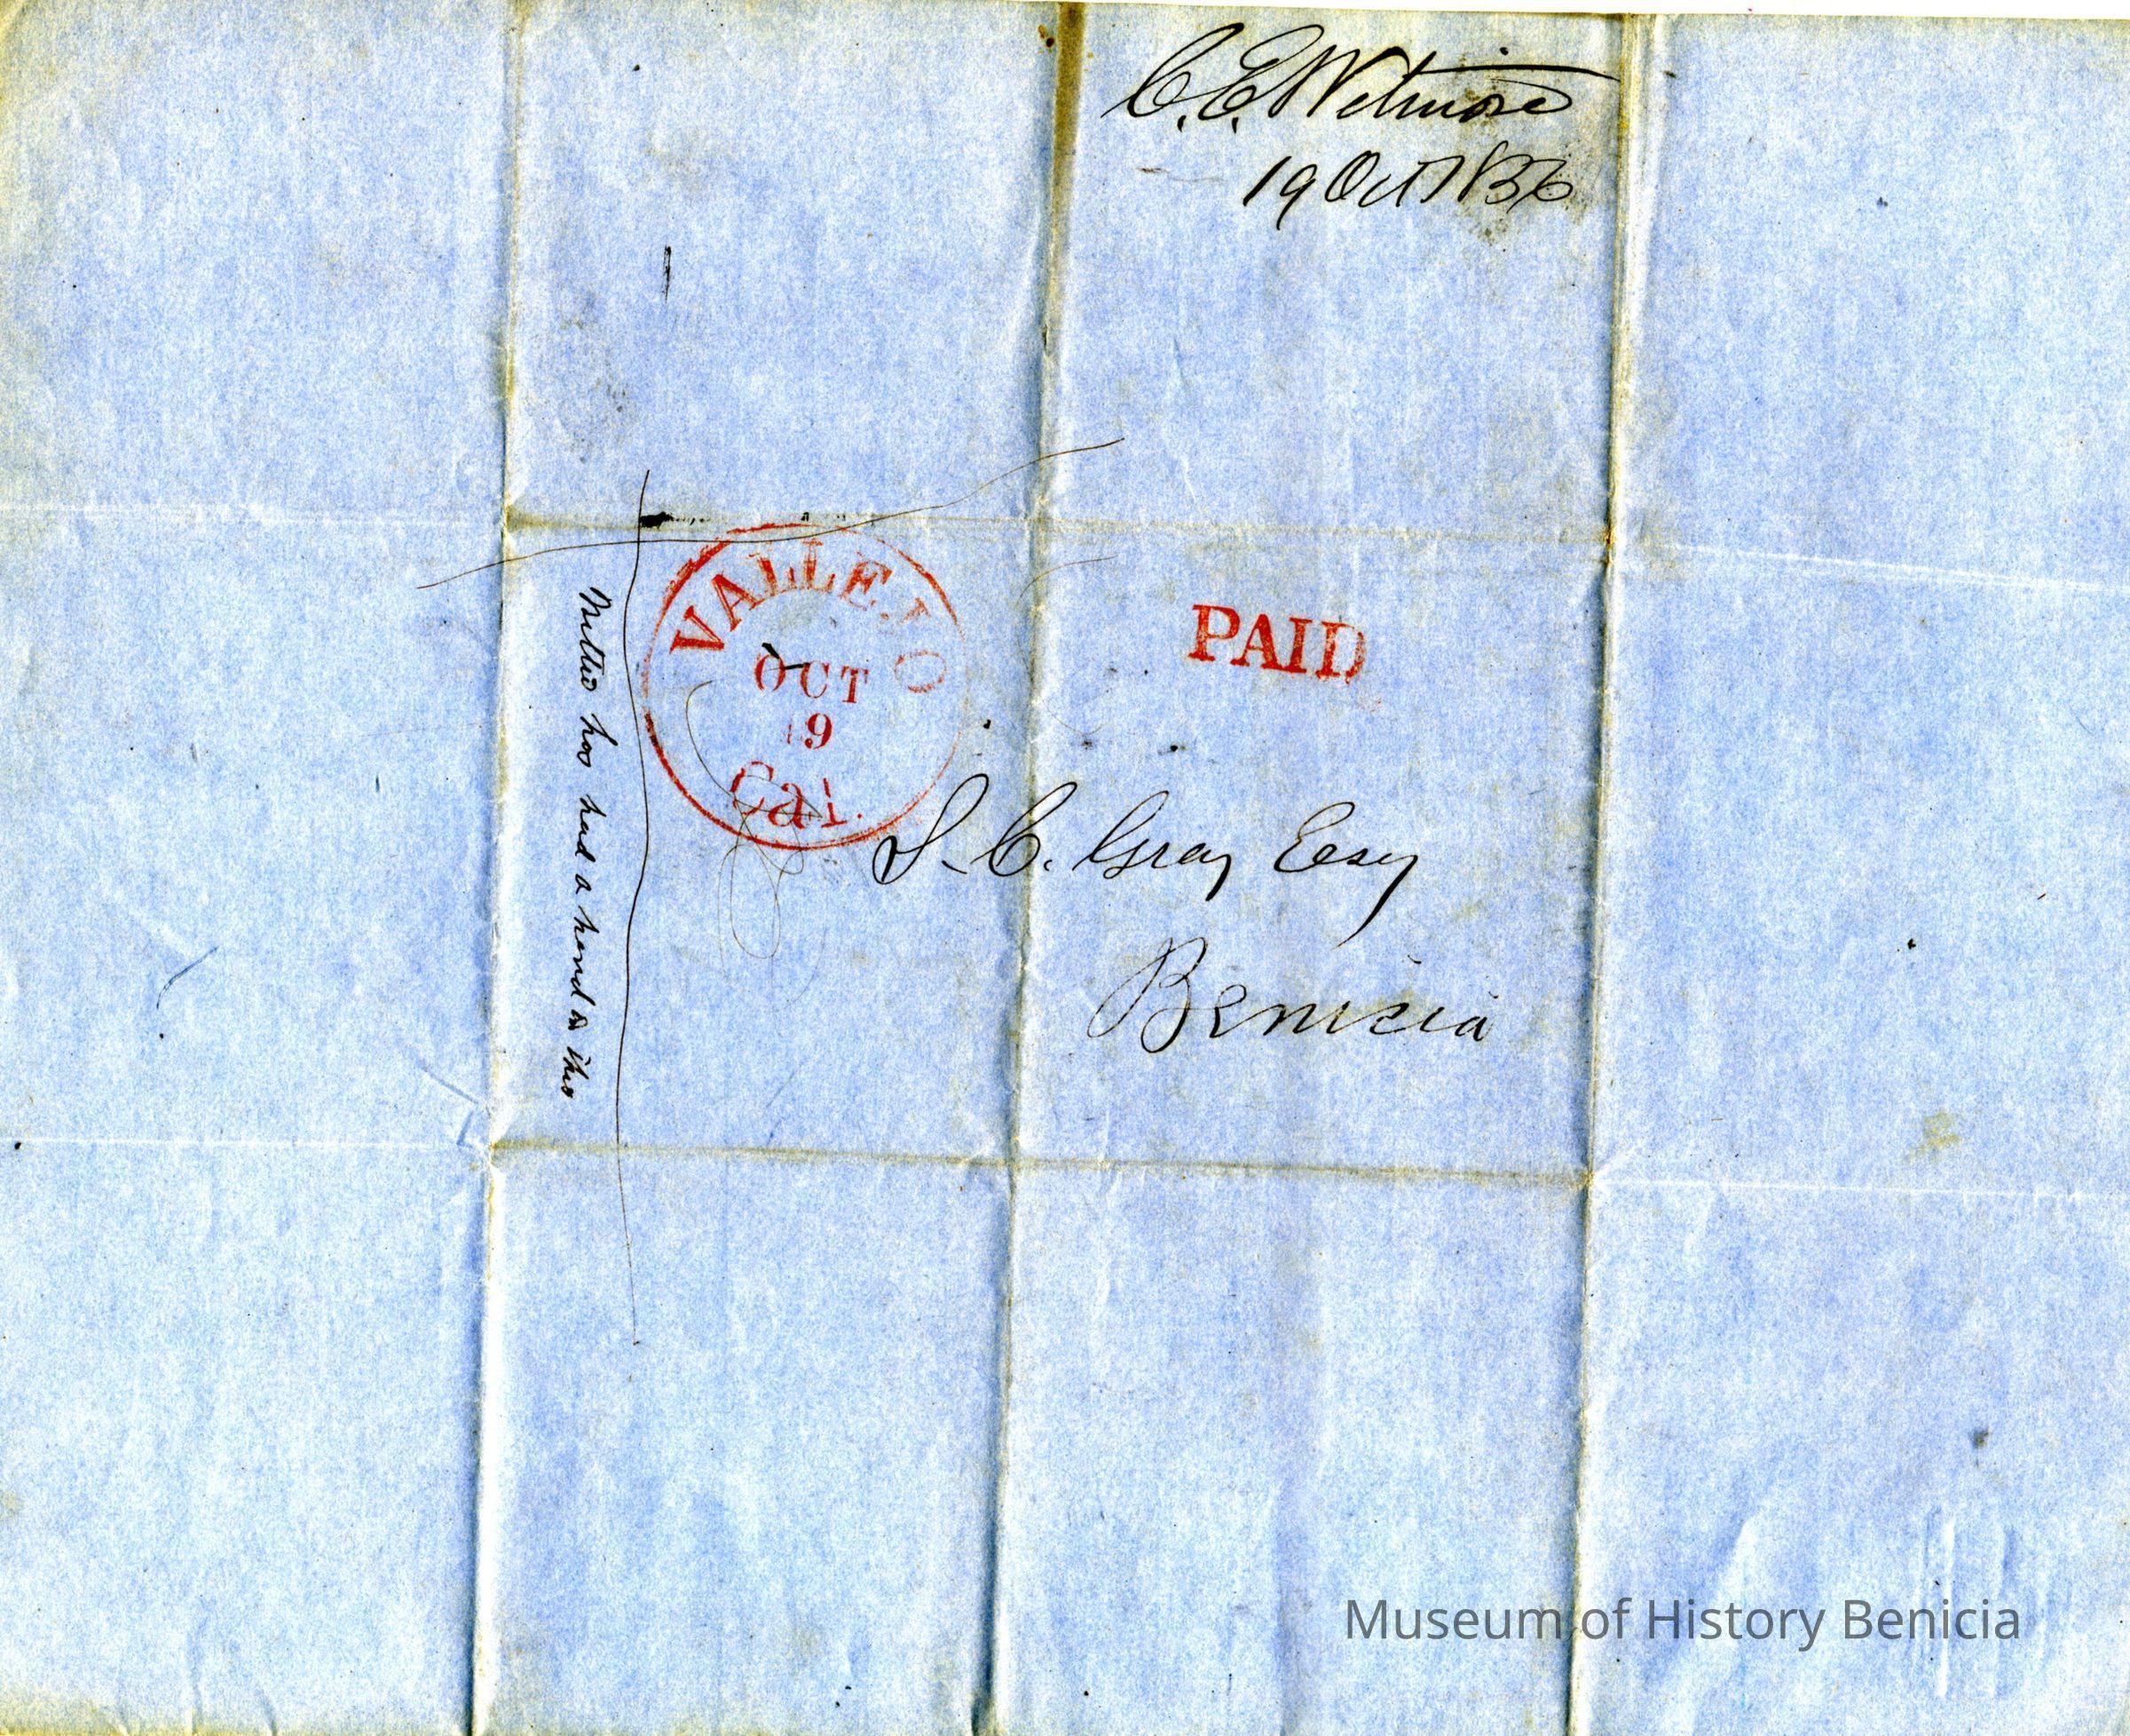 C. E. Wetmore
19 Oct 1856
VALLEJO
OCT
19
Cal.
PAID
S. C. Gray Esq
Benicia
Nellie has had a hand in this
Museum of History Benicia